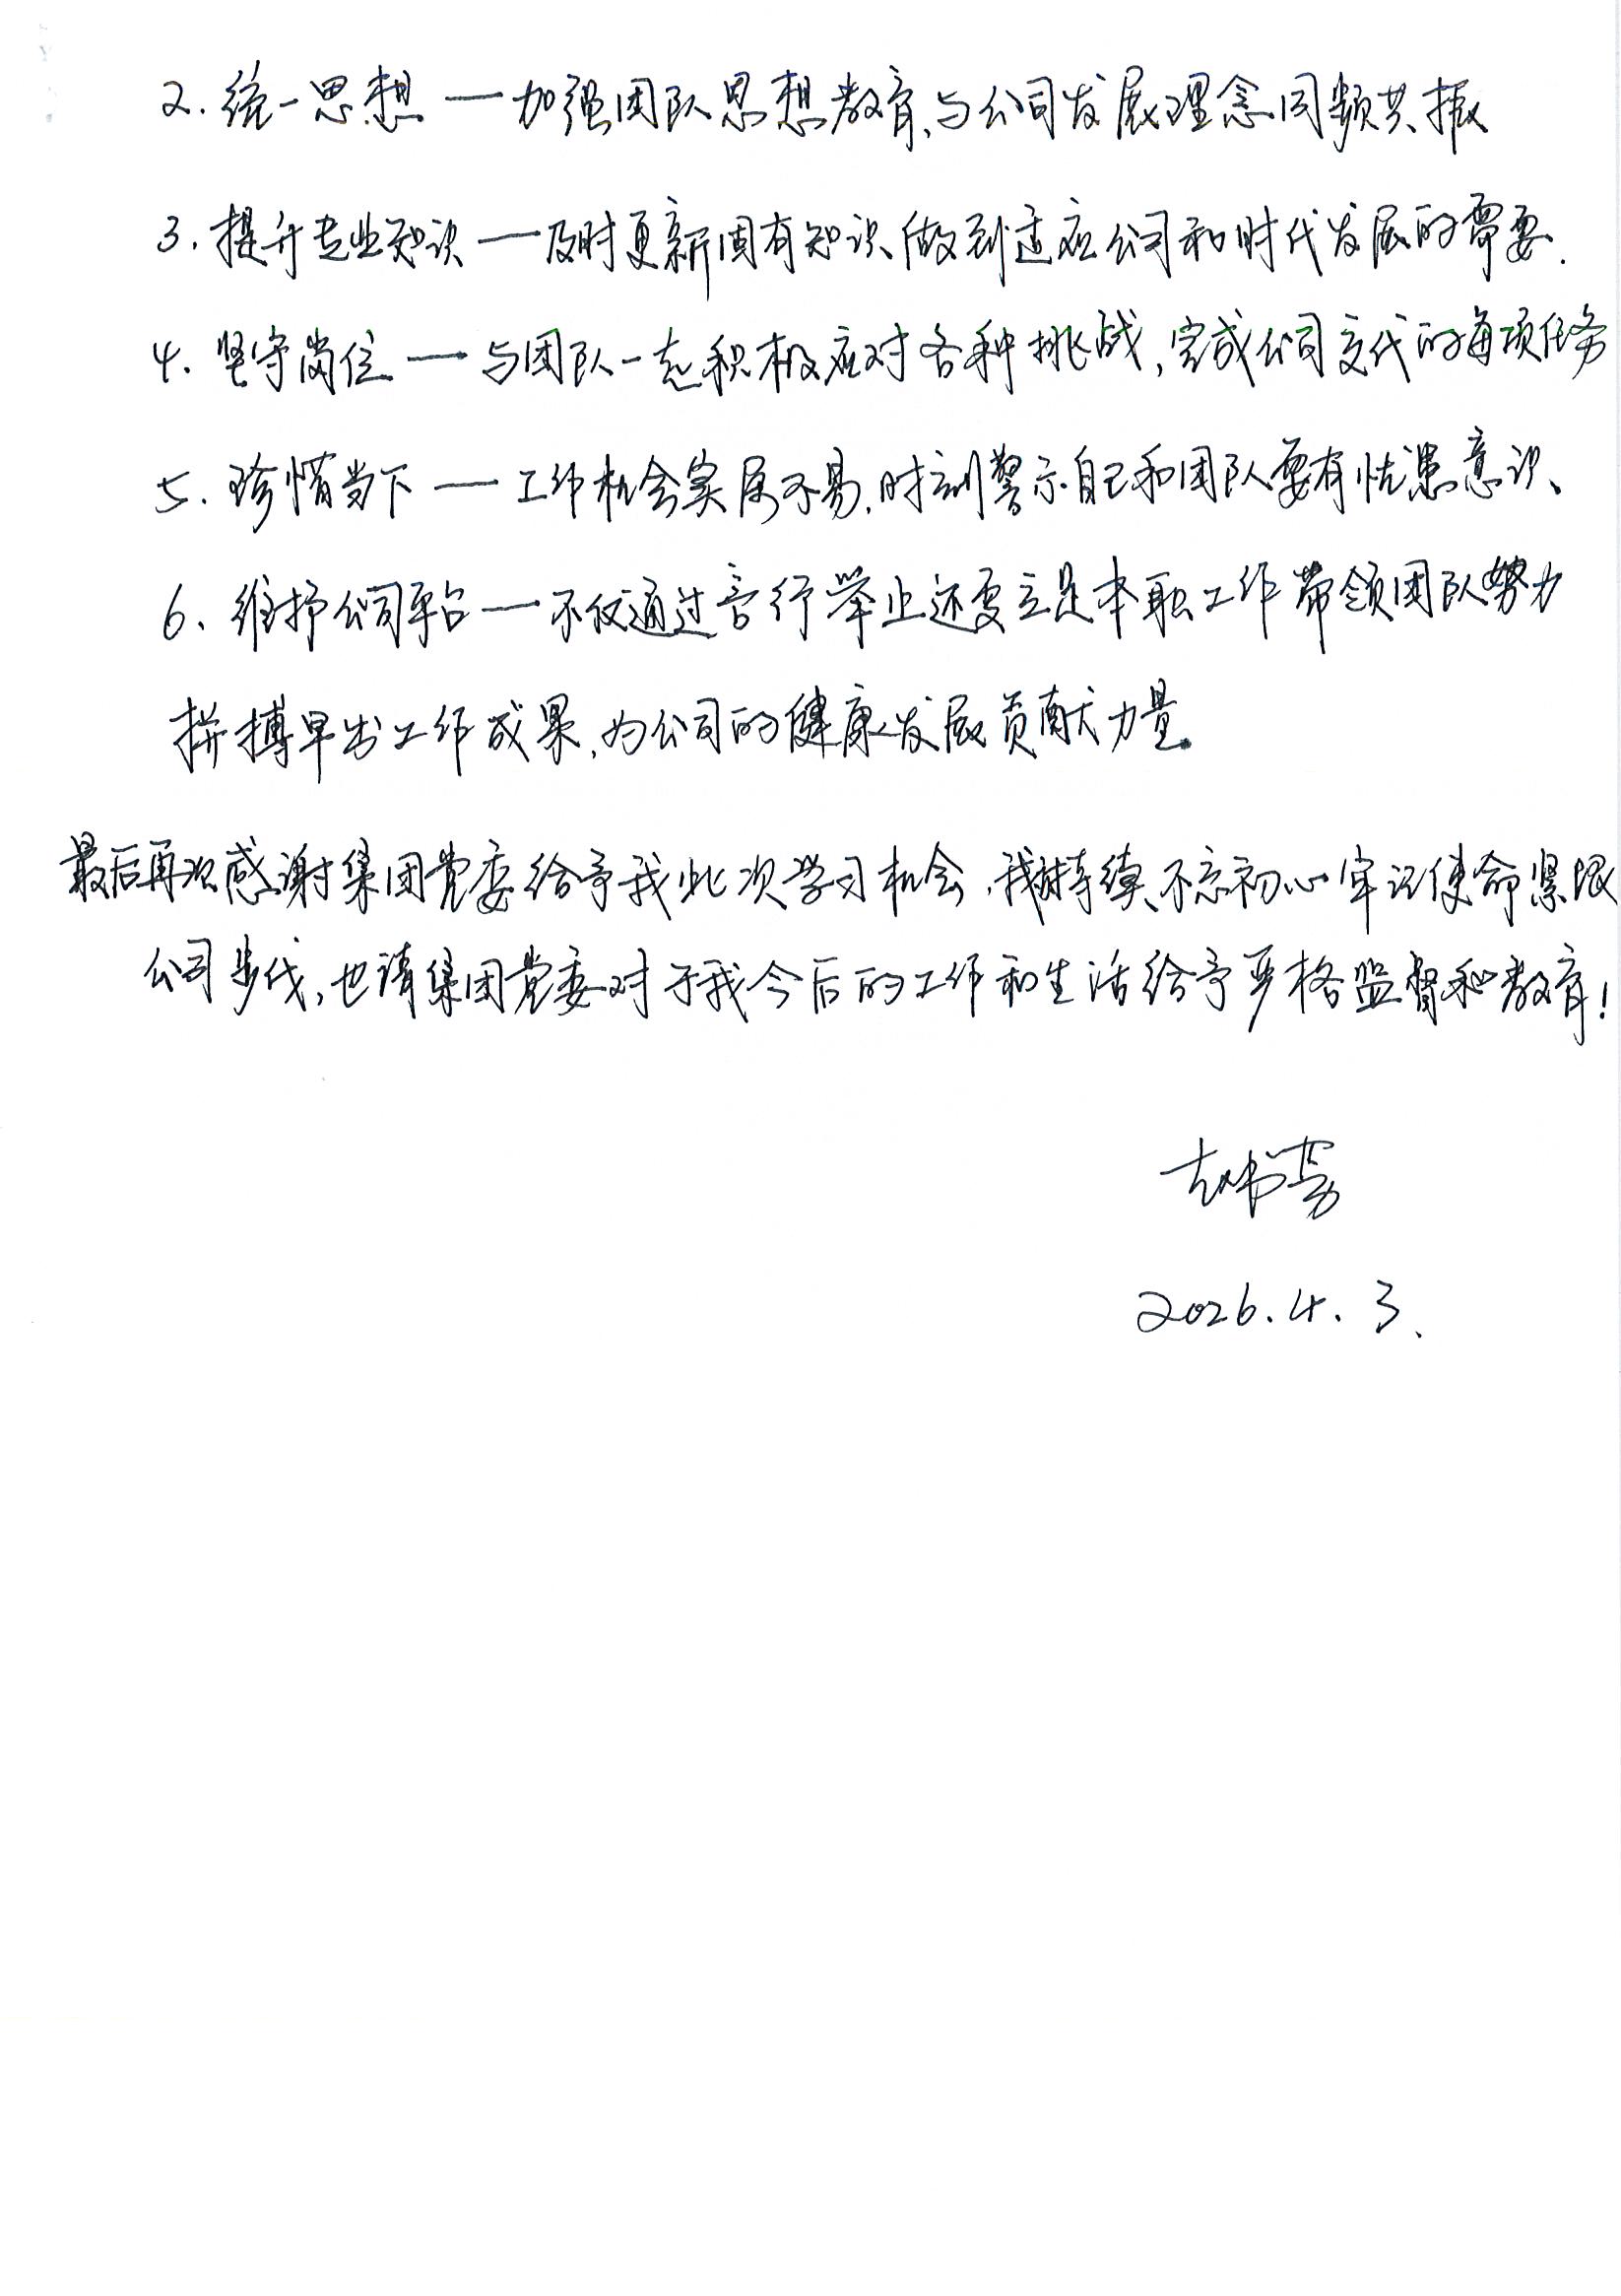 2. 统一思想 — 加强团队思想教育,与公司发展理念同频共振
3. 提升专业知识 — 及时更新固有知识,做到适应公司和时代发展的需要.
4. 坚守岗位 — 与团队一起积极应对各种挑战,完成公司交代的每项任务
5. 珍惜当下 — 工作机会实属不易,时刻警示自己和团队要有忧患意识、
6、维护公司平台 — 不仅通过言行举止还要立足本职工作带领团队努力
拼搏早出工作成果,为公司的健康发展贡献力量。
最后再次感谢集团党委给予我此次学习机会,我将持续、不忘初心牢记使命紧跟
公司步伐,也请集团党委对于我今后的工作和生活给予严格监督和教育!
2026.4.3、